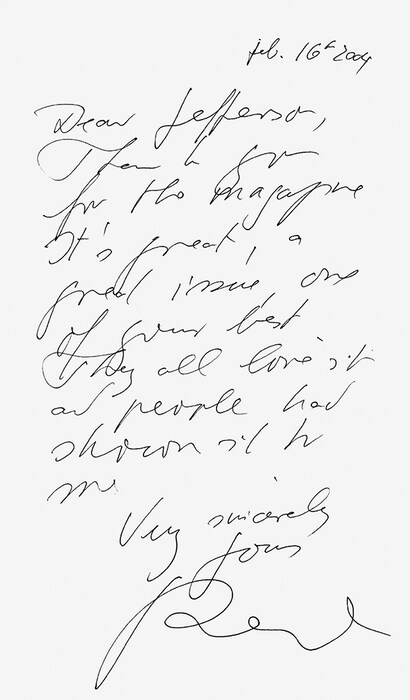 Feb. 16th 2004
Dear Jefferson,
Thank you
for the magazine
It's great, a
great issue, one
of your best
They all love it
and people had
shown it to
me.
Very sincerely
Yours